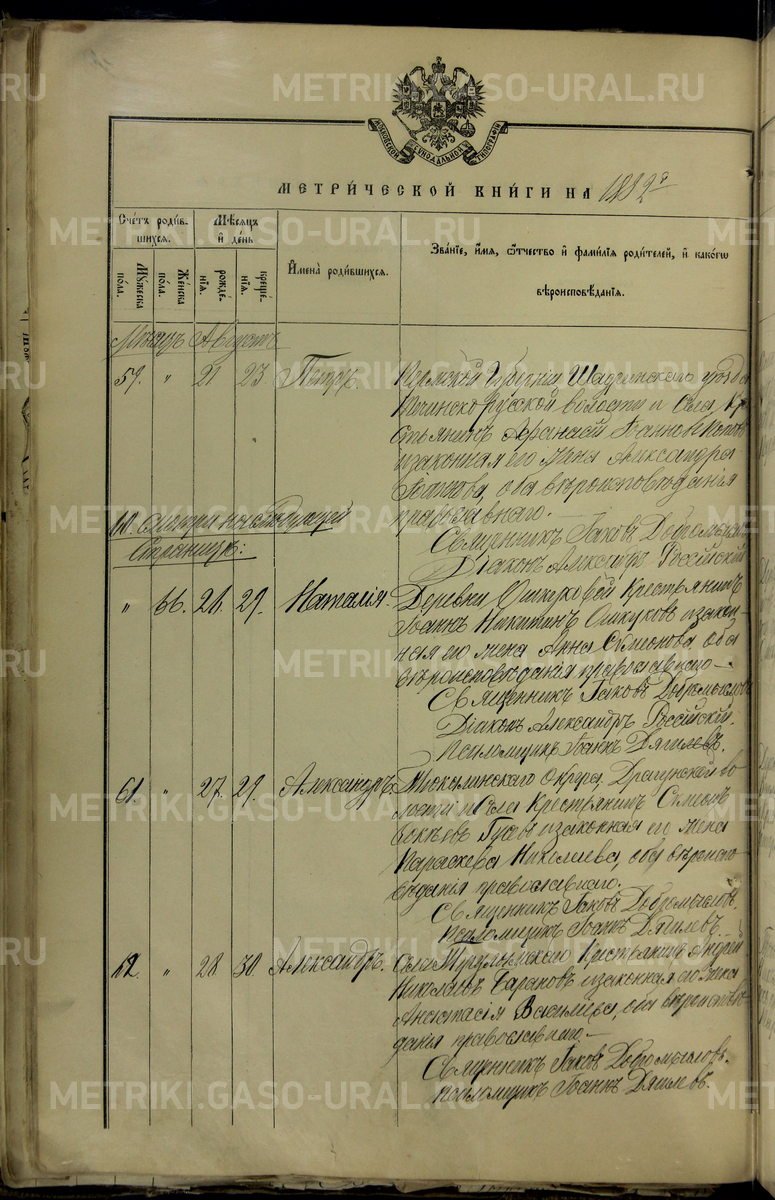 МОСКОВСКОЙ СѴНОДАЛЬНОЙ ТИПОГРАФІИ
МЕТРИ́ЧЕСКОЙ КНИ́ГИ НА 1892 г
Сче́тъ роди́в-
шихся.
Мѣ́сяцъ
и҆ де́нь
И҆мена̀ роди́вшихся.
Зва́нїе, и҆́мя, ѻ҆́тчество и҆ фами́лїя роди́телей, и҆ како́гѡ
вѣроисповѣ́данїя.
Мꙋ́жеска
по́ла.
Же́нска
по́ла.
рожде́-
нїѧ.
креще́-
нїѧ.
Мѣсяцъ Августъ
59. " 21 23 Петръ
Пермской губерніи Шадринскаго уѣзда
Русской волости и села Кре
стьянинъ Афанасій Іоанновъ
и законная его жена Александра
оба вѣроисповѣданія
православнаго.
Священникъ Іаковъ Добромысловъ
Діаконъ Александръ Россійскій
60. смотри на слѣдующей
страницѣ:
" 56. 26. 29. Наталія.
Деревни Ошкуковой Крестьянинъ
Іоаннъ Никитинъ Ошкуковъ и закон
ная его жена Анна Симеонова, оба
вѣроисповѣданія православнаго.—
Священникъ Іаковъ Добромысловъ
Діаконъ Александръ Россійскій.
Псаломщикъ Іоаннъ Дягилевъ.
61. " 27. 29. Александръ.
Тюкалинскаго Округа, Драгунской во
лости и села Крестьянинъ Симеонъ
и законная его жена
Параскева Николаева, оба вѣроиспо
вѣданія православнаго.
Священникъ Іаковъ Добромысловъ.
Псаломщикъ Іоаннъ Дягилевъ.
62. " 28 30 Александръ.
Села Крестьянинъ Андрей
Николаевъ Барановъ и законная его жена
Анастасія Васильева, оба вѣроисповѣ
данія православнаго.—
Священникъ Іаковъ Добромысловъ.
Псаломщикъ Іоаннъ Дягилевъ.
METRIKI.GASO-URAL.RU